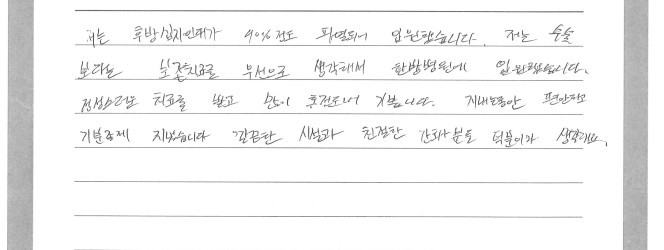 저는 후방십자인대가 90%정도 파열되어 입원했습니다. 저는 수술
보다는 보존치료를 우선으로 생각해서 한방병원에 입원했습니다.
정성스러운 치료를 받고 많이 호전되어 기쁩니다. 지내는동안 편안하고
기분좋게 지냈습니다 깔끔한 시설과 친절한 간호사분들 덕분이라 생각해요.